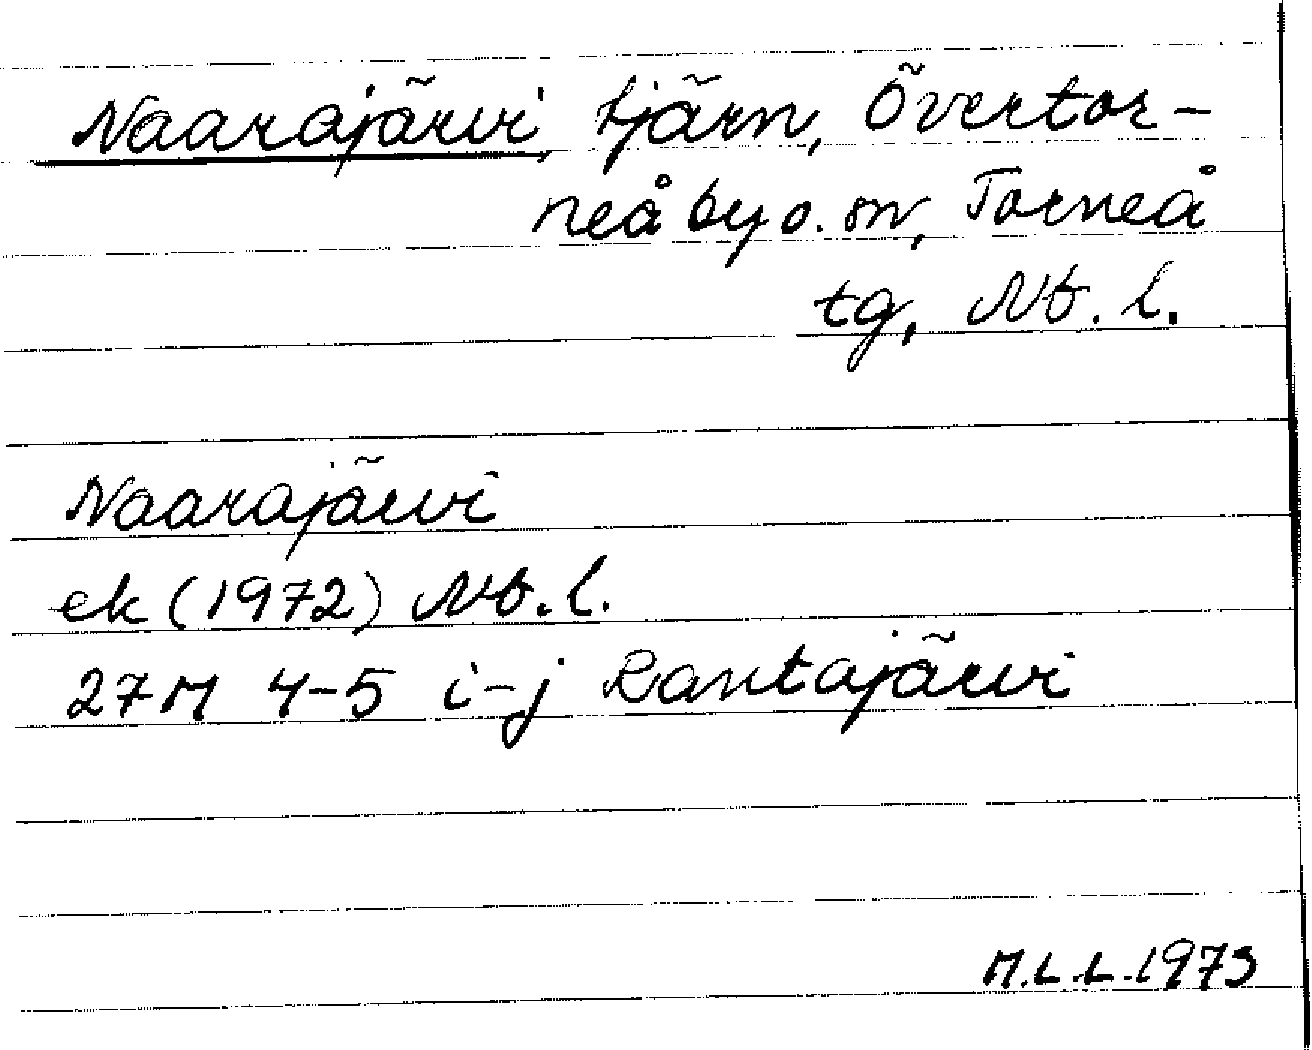 Naarajärvi, tjärn, Övertor-
neå by o. sn, Torneå
tg, Nb. l.
Naarajärvi
ek (1972) Nb. l.
27M 4-5 i-j Rantajärvi
M.L.L. 1973